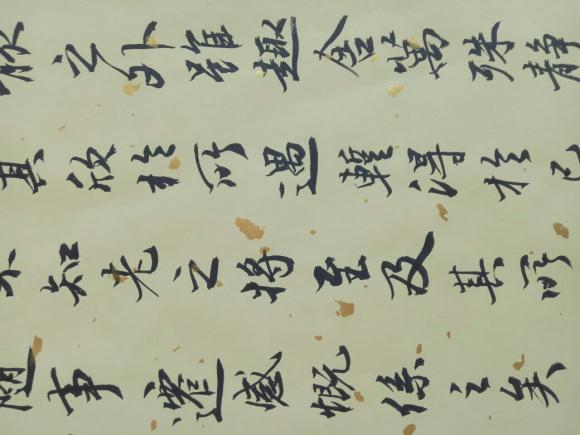 骸之外雖趣舍萬殊靜
其欣於所遇暫得於己
不知老之將至及其所
隨事遷感慨係之矣